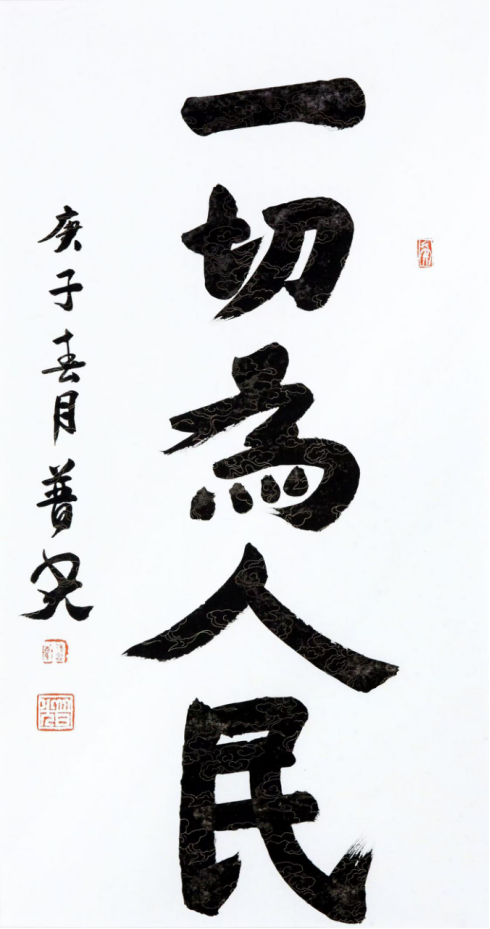 一切為人民
庚子春月普光